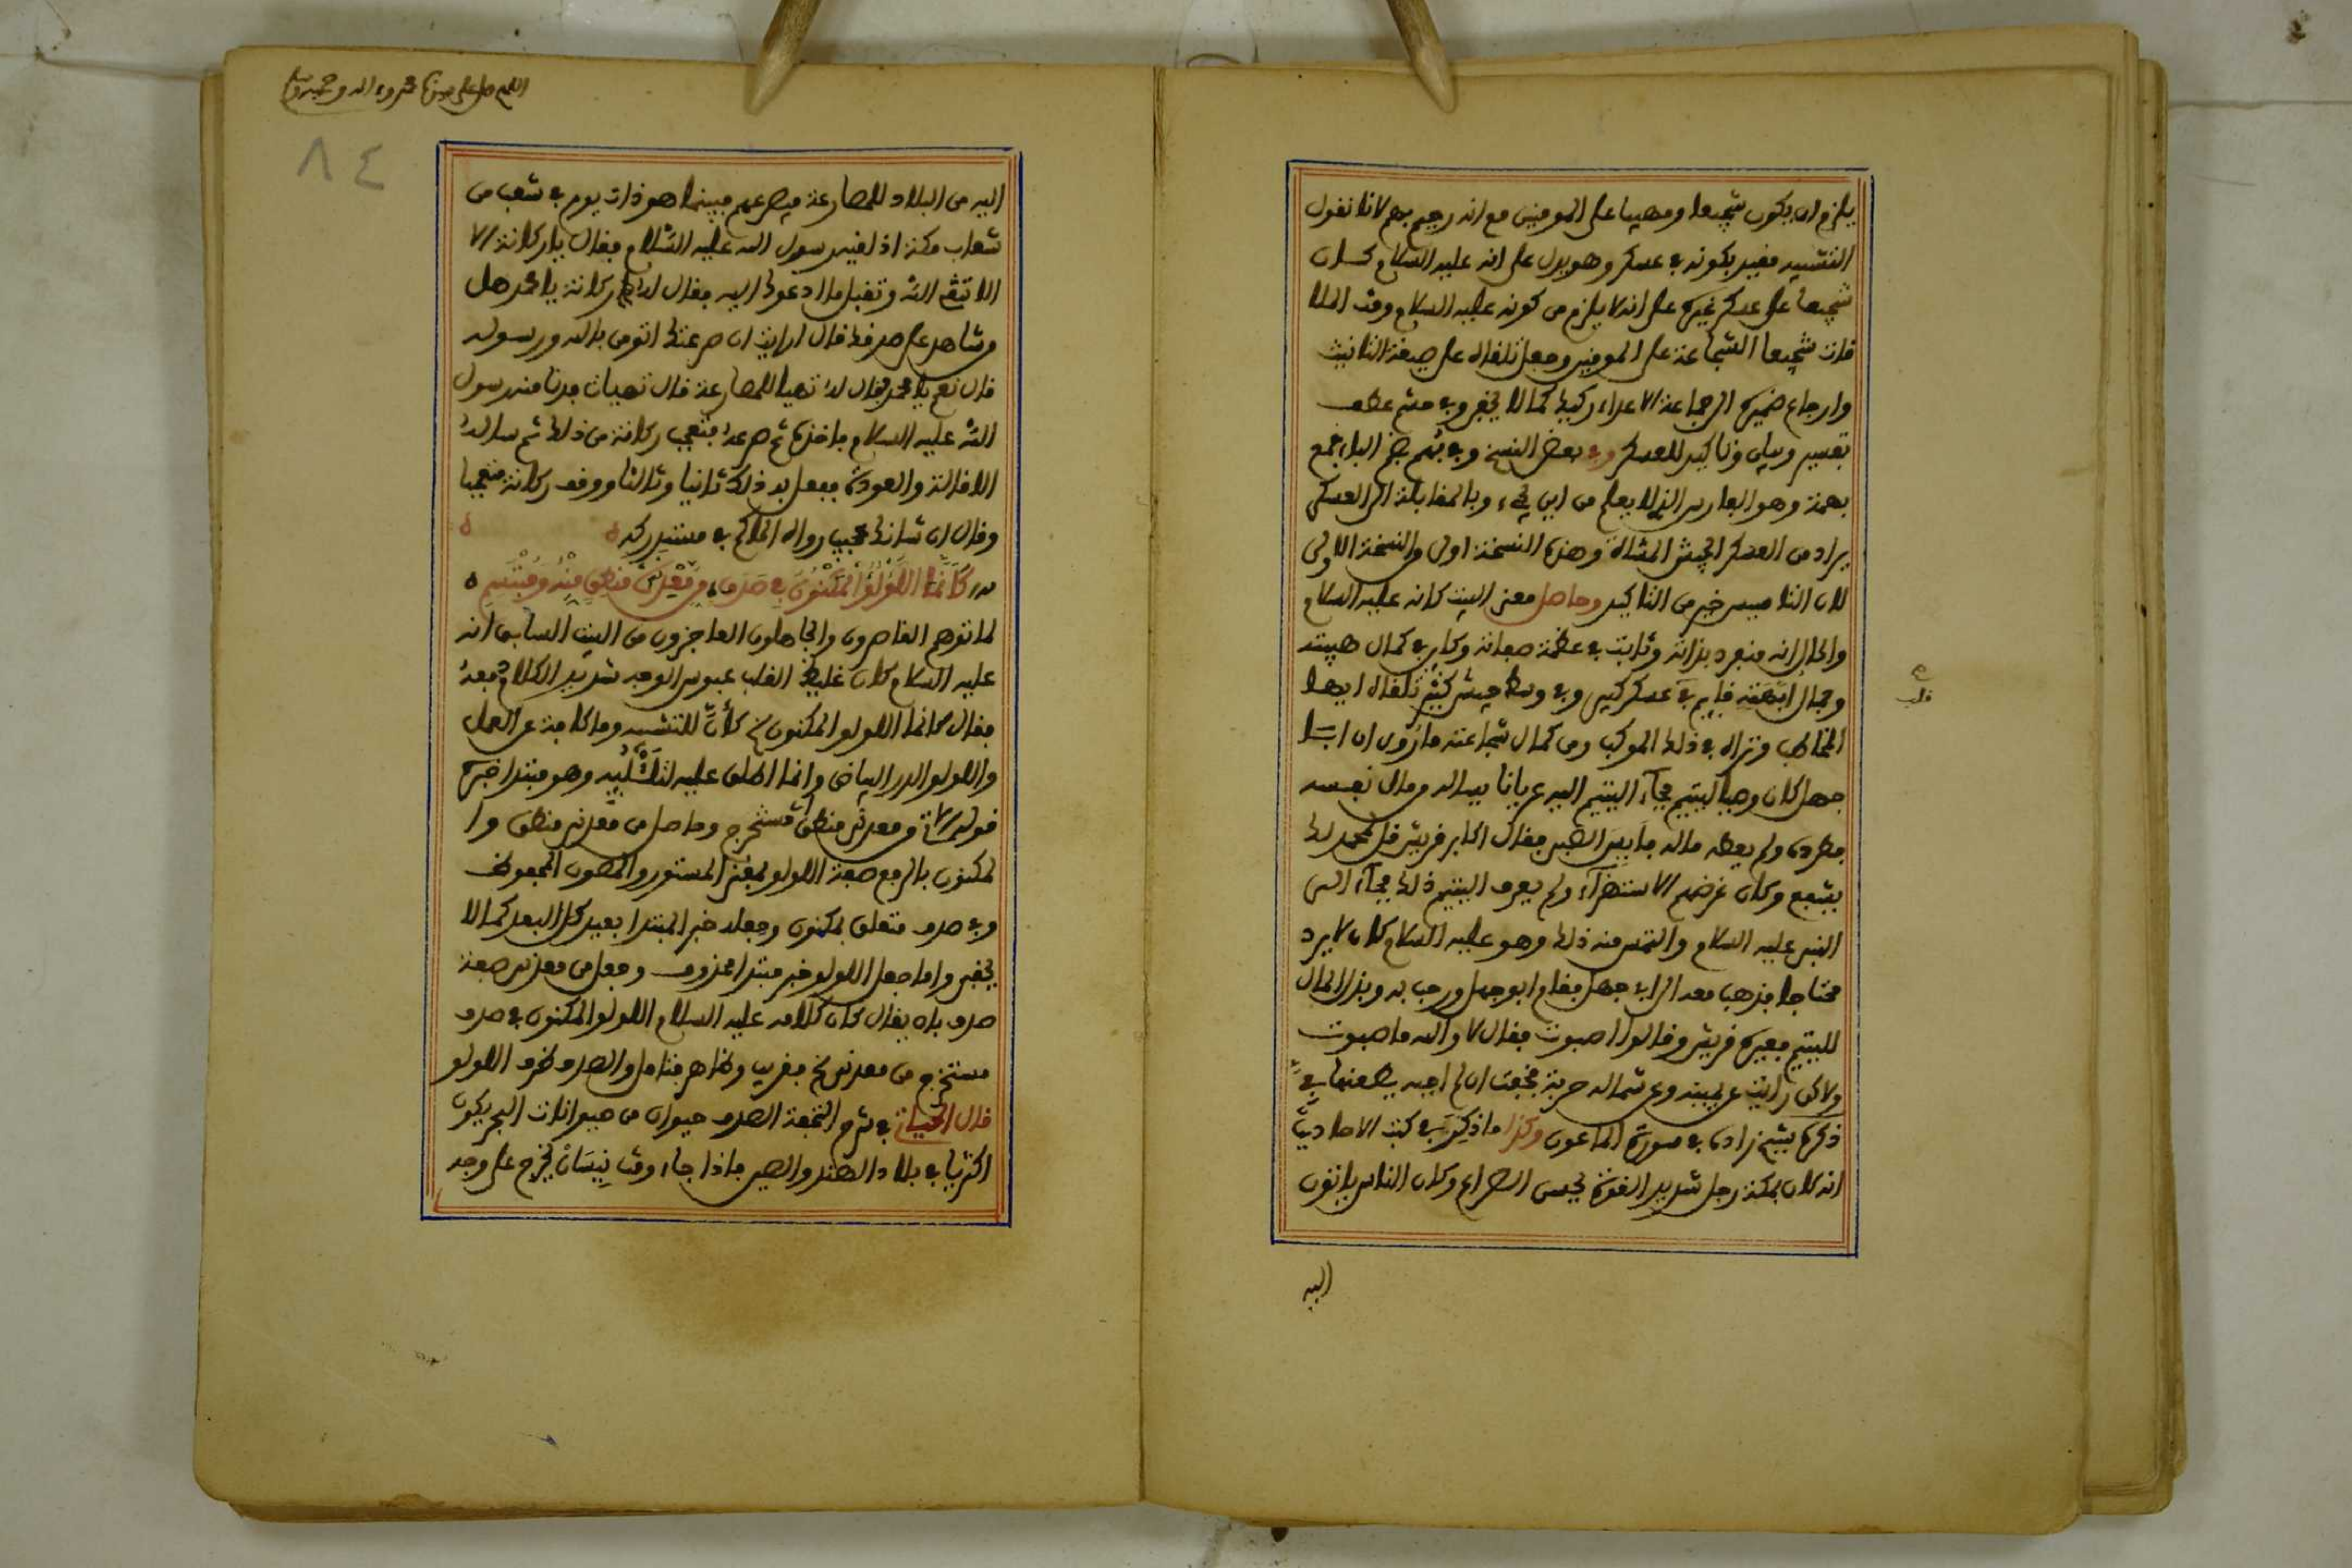 يلزم ان يكون شجيعا ومهيبا على المومنين مع انه رحيم بهم لانا نقول
التشبيه مقيد بكونه في عسكر وهو يدل على انه عليه السلام كان
شجيعا على عسكر غيره على انه لا يلزم من كونه عليه السلام وقت الملا
قات شجيعا الشجاعة على المومنين وجعل تلقاه على صيغة التانيث
وارجاع ضميره الى جماعة الاعداء ركيك كما لا يخفى وفي حشم عطف
تفسير وبيان وتاكيد للعسكر وفي بعض النسخ وفي بهم بضم الباء جمع
بهمة وهو الفارس الذي لا يعلم من اين يجيء وبالمقابلة الى العسكر
يراد من العسكر الجيش المشاة وهذه النسخة اولى والنسخة الاولى
لان التاسيس خير من التاكيد وحاصل معنى البيت كانه عليه السلام
والحال انه منفرد بذاته وثابت في عظمة صفاته وكاين في كمال هيبته
وجمال ابهته قايم في عسكر كبير وفي وسط جيش كثير تلقاه ايها
قلب
المخاطب وتراه في ذلك الموكب ومن كمال شجاعته ما روى ان ابا
جهل كان وصيا ليتيم فجاء اليتيم اليه عريانا يساله من مال نفسه
فطرده ولم يعطه ماله فايس الصبي فقال اكابر قريش قل لمحمد لك
يشفع وكان غرضهم الاستهزاء ولم يعرف اليتيم ذلك فجاء الى
النبي عليه السلام والتمس منه ذلك وهو عليه السلام كان لا يرد
محتاجا فذهب معه الى ابي جهل فقام ابو جهل ورحب به وبذل المال
لليتيم فعيره قريش وقالوا اصبوت فقال لا والله ما صبوت
ولاكن رايت عن يمينه وعن شماله حربة فخفت ان لم اجبه يطعنها في
ذكره شيخ زاده في سورة الماعون وكذا ما ذكر في كتب الاحاديث
انه كان بمكة رجل شديد القوة يحسن الصراع وكان الناس ياتون
اليه
اللهم صل على سيدنا محمد وءاله وصحبه وسلم
٨٤
اليه من البلاد للمصارعة فيصرعهم فبينما هو ذات يوم في شعب من
شعاب مكة اذ لقيه رسول الله عليه السلام فقال يا ركانة الا
الا تتق الله وتقبل ما ادعوك اليه فقال له ركانة يا محمد هل
من شاهد على صدقك قال ارايت ان صرعتك اتومن بالله ورسوله
قال نعم يا محمد فقال له تهيا للمصارعة قال تهيات فدنا منه رسول
الله عليه السلام فاخذه ثم صرعه فتعجب ركانة من ذلك ثم ساله
الاقالة والعودة ففعل به ذلك ثانيا وثالثا ووقف ركانة متعجبا
وقال ان شانك عجيب رواه الحاكم في مستدركه
كَأَنَّمَا اللُّؤْلُؤُ الْمَكْنُونُ فِي صَدَفٍ مِنْ مَعْدِنَيْ مَنْطِقٍ مِنْهُ وَمُبْتَسِمِ
لما توهم القاصرون والجاهلون العاجزون من البيت السابق انه
عليه السلام كان غليظ القلب عبوس الوجه شديد الكلام فدفعه
فقال كانما اللولو المكنون كأنَّ للتشبيه وما كافة عن العمل
واللولو الدر البياض وانما اطلق عليه لتلألئه وهو مبتدا خبره
قوله الاتي من معدني منطق اي مستخرج وحاصل من معدني منطق وا
لمكنون بالرفع صفة اللولو بمعنى المستور والمصون المحفوظ
وفي صدف متعلق بمكنون وجعله خبر المبتدا بعيد كل البعد كما لا
يخفى واما جعل اللولو خبر مبتدا محذوف وجعل من معدني صفة
صدف بان يقال كان كلامه عليه السلام اللولو المكنون في صدف
مستخرج من معدني فقريب وظاهر فتامل والصدف ظرف اللولو
قال في شرح التحفة الصدف حيوان من حيوانات البحر يكون
اكثريا في بلاد الهند والصين فاذا جاء وقت نِيسَانْ يخرج على وجه